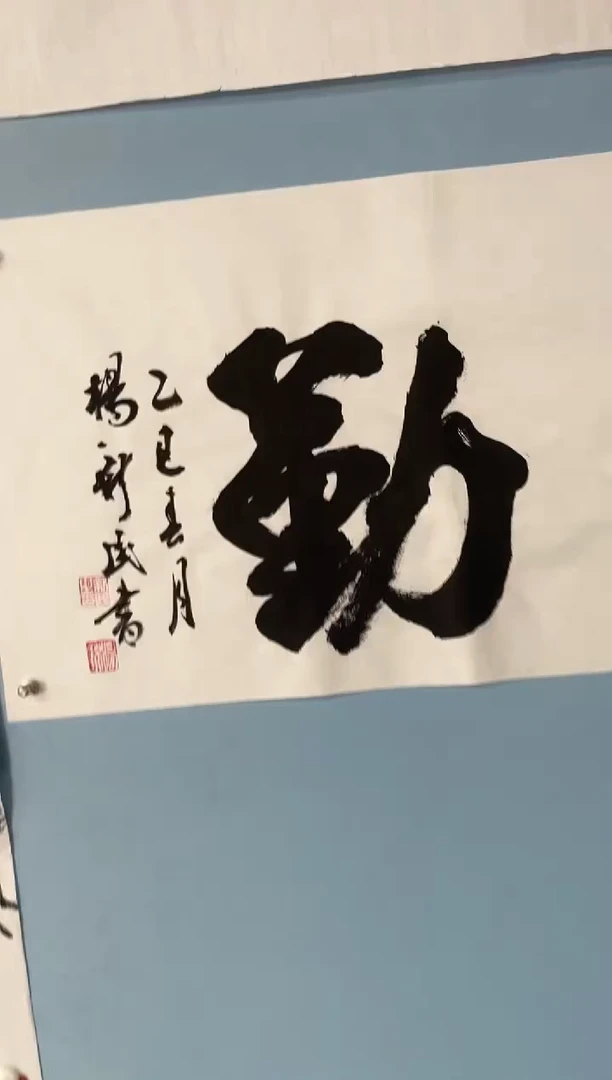 勤
乙巳春月
楊新民書